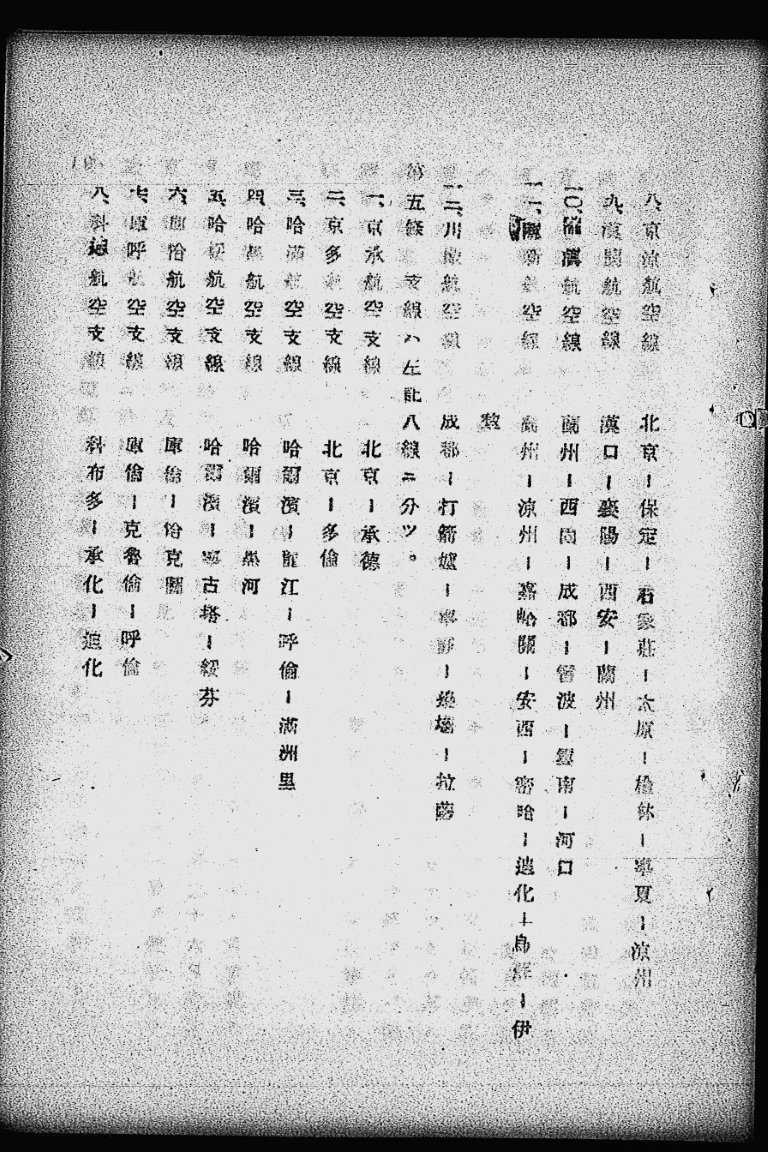 八、京涼航空線　北京ー保定ー石家莊ー太原ー楡林ー寧夏ー涼州
九、漢蘭航空線　漢口ー襄陽ー西安ー蘭州
一〇、航空線　蘭州ー西固ー成都ー寧波ー雲南ー河口
一一、蘭新航空線　蘭州ー涼州ー嘉峪關ー安西ー密哈ー迪化ー烏蘇ー伊
犂
一二、川藏航空線　成都ー打箭爐ー寧靜ー ー拉薩
第五條　支線ハ左記八線ニ分ツ。
一、京承航空支線　北京ー承德
二、京多航空支線　北京ー多倫
三、哈滿航空支線　哈爾濱ー龍江ー呼倫ー滿洲里
四、哈黑航空支線　哈爾濱ー黑河
五、哈綏航空支線　哈爾濱ー寧古塔ー綏芬
六、庫恰航空支線　庫倫ー恰克圖
七、庫呼航空支線　庫倫ー克魯倫ー呼倫
八、科迪航空支線　科布多ー承化ー迪化